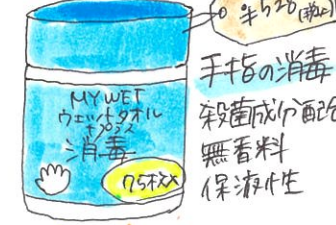 ¥528(税込)
MY WET
ウェットタオル
プラス
消毒
75枚入
手指の消毒
殺菌成分配合
無香料
保液性